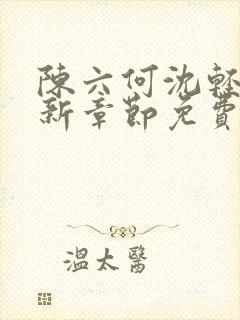 陳六何沈輕
新章節免費
溫太醫